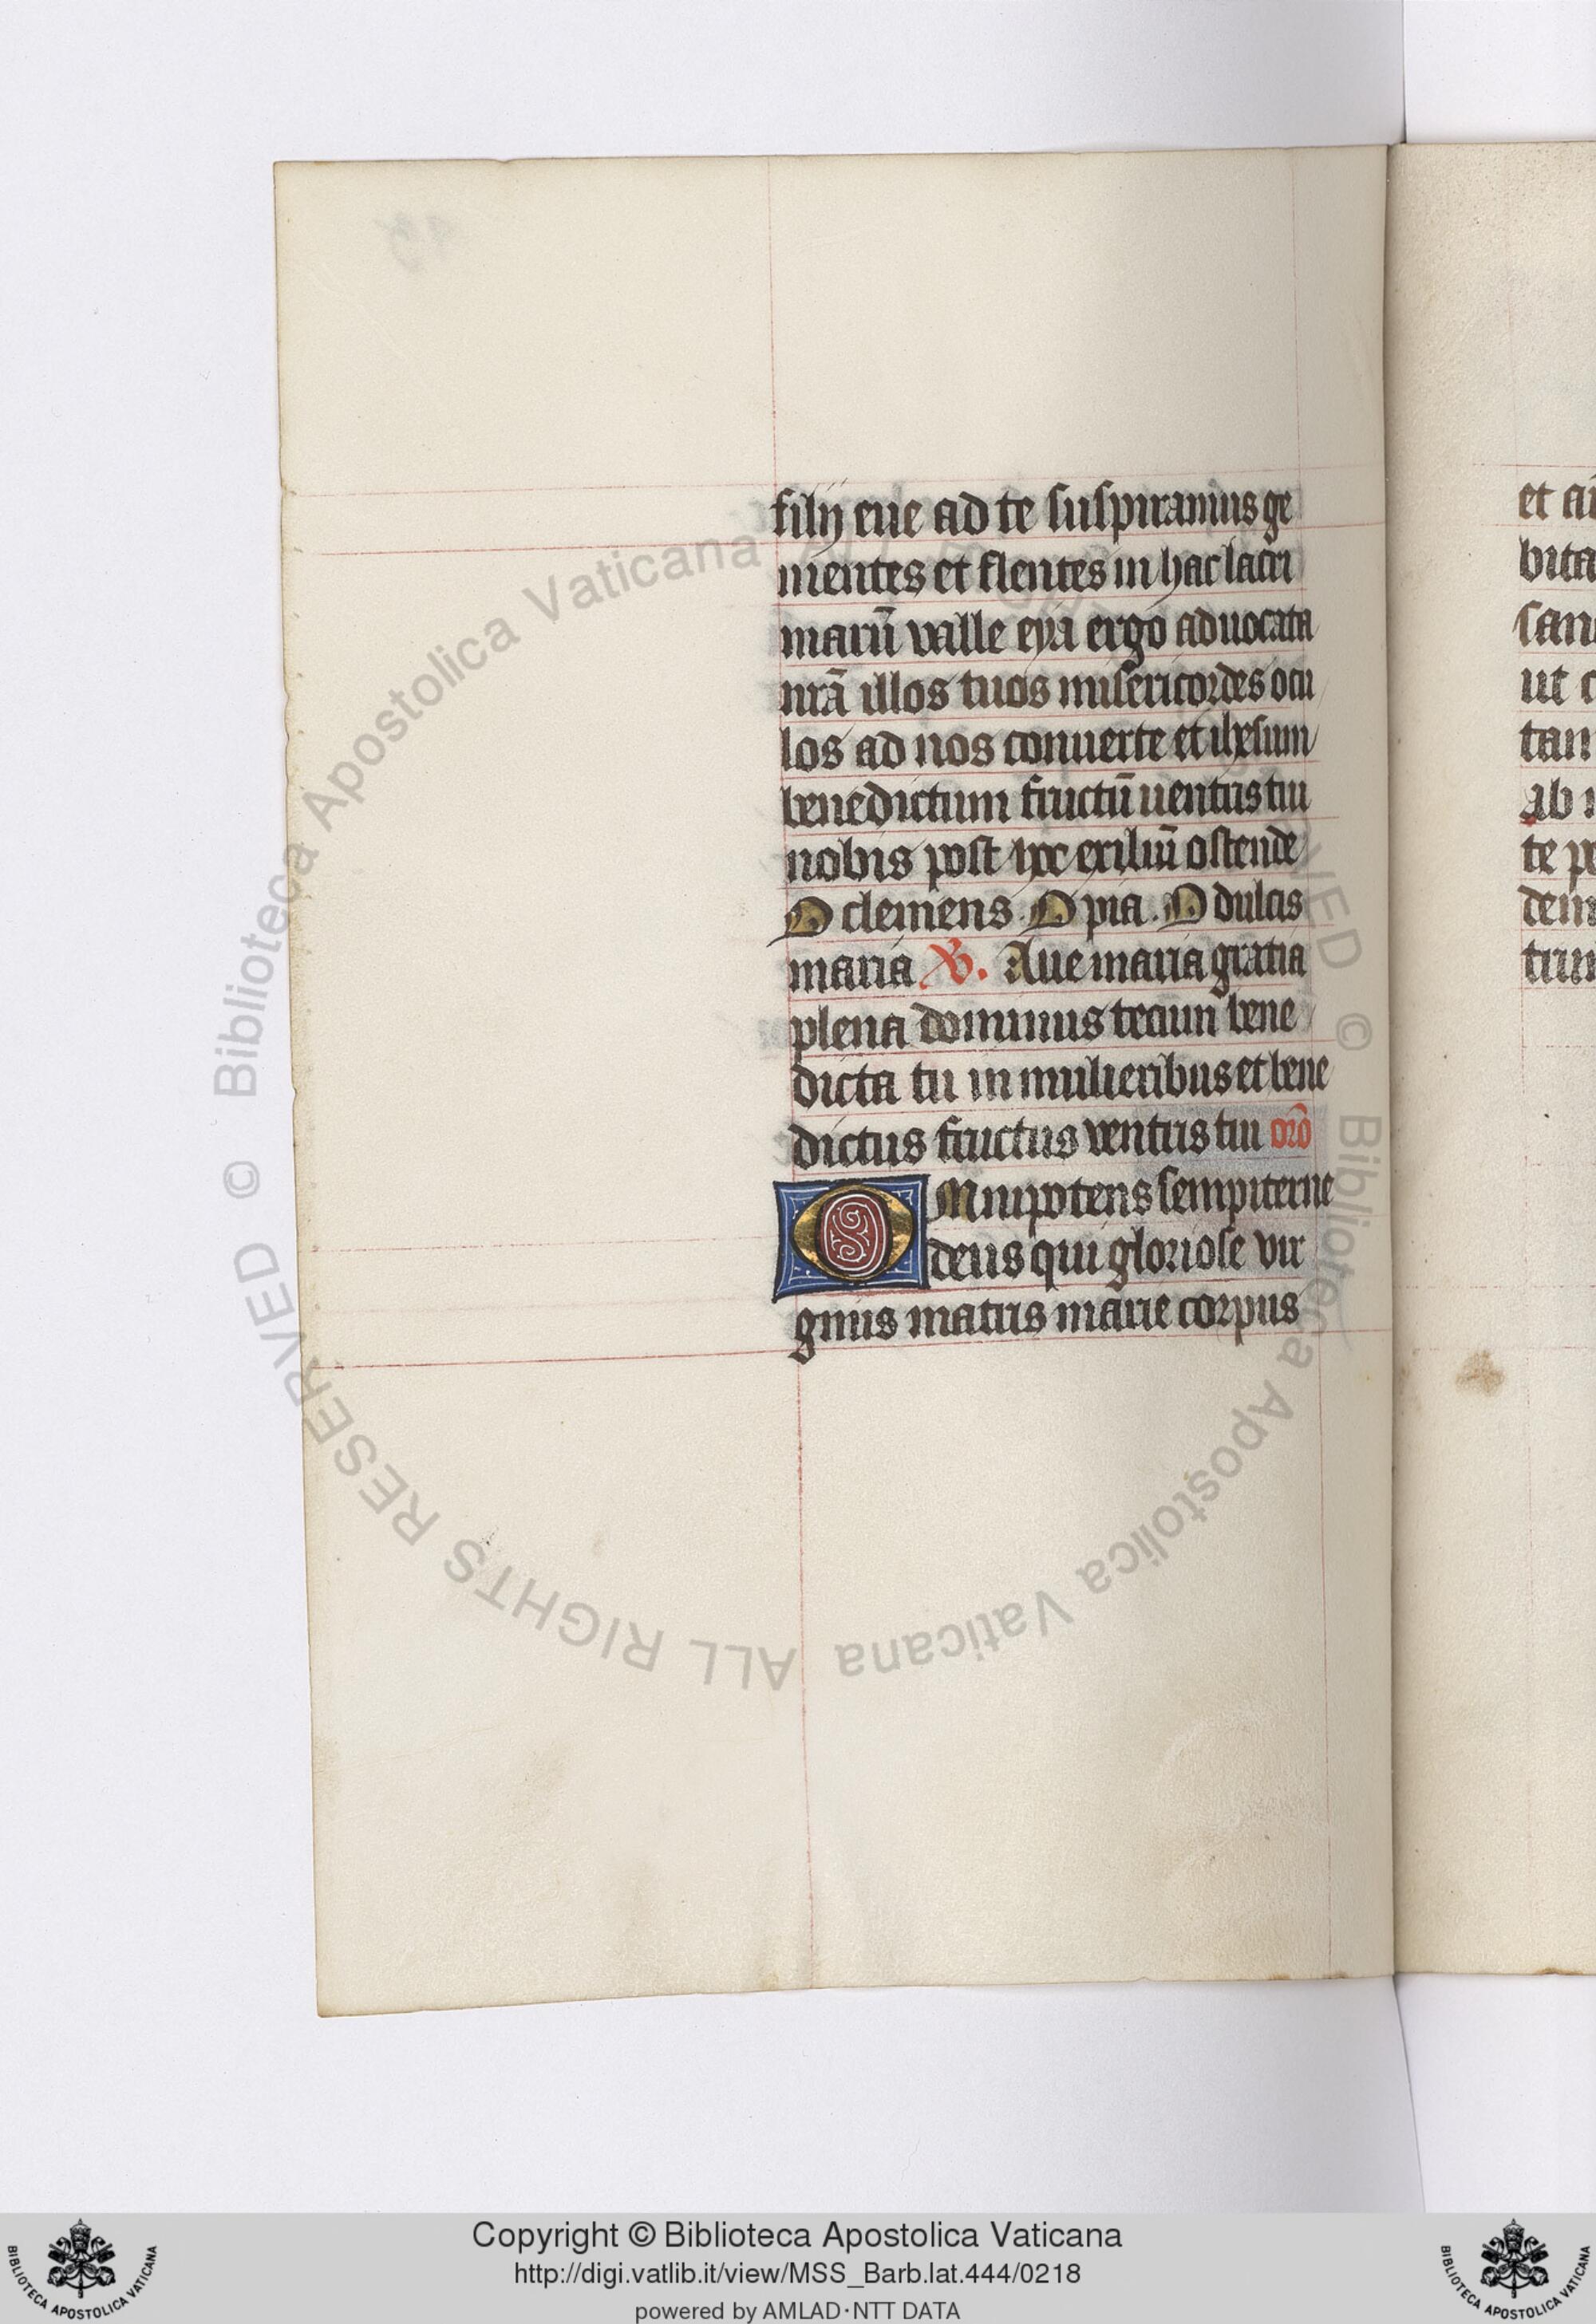 filij eue ad te suspiramus ge
mentes et flentes in hac lacri
marū valle eya ergo aduocata
nrā illos tuos misericordes ocu
los ad nos conuerte et ihesum
benedictum fructū uentris tui
nobis post hoc exiliū ostende
O clemens. O pia. O dulcis
maria ℣. Aue maria gratia
plena dominus tecum bene
dicta tu in mulieribus et bene
dictus fructus ventris tui orō
OMnipotens sempiterne
deus qui gloriose vir
ginis matris marie corpus
et
bita
san
ut c
tan
ab
te
dem
© Biblioteca Apostolica Vaticana ALL RIGHTS RESERVED © Biblioteca Apostolica Vaticana ALL RIGHTS RESERVED
Copyright © Biblioteca Apostolica Vaticana
http://digi.vatlib.it/view/MSS_Barb.lat.444/0218
powered by AMLAD·NTT DATA
BIBLIOTECA APOSTOLICA VATICANA
BIBLIOTECA APOSTOLICA VATICANA